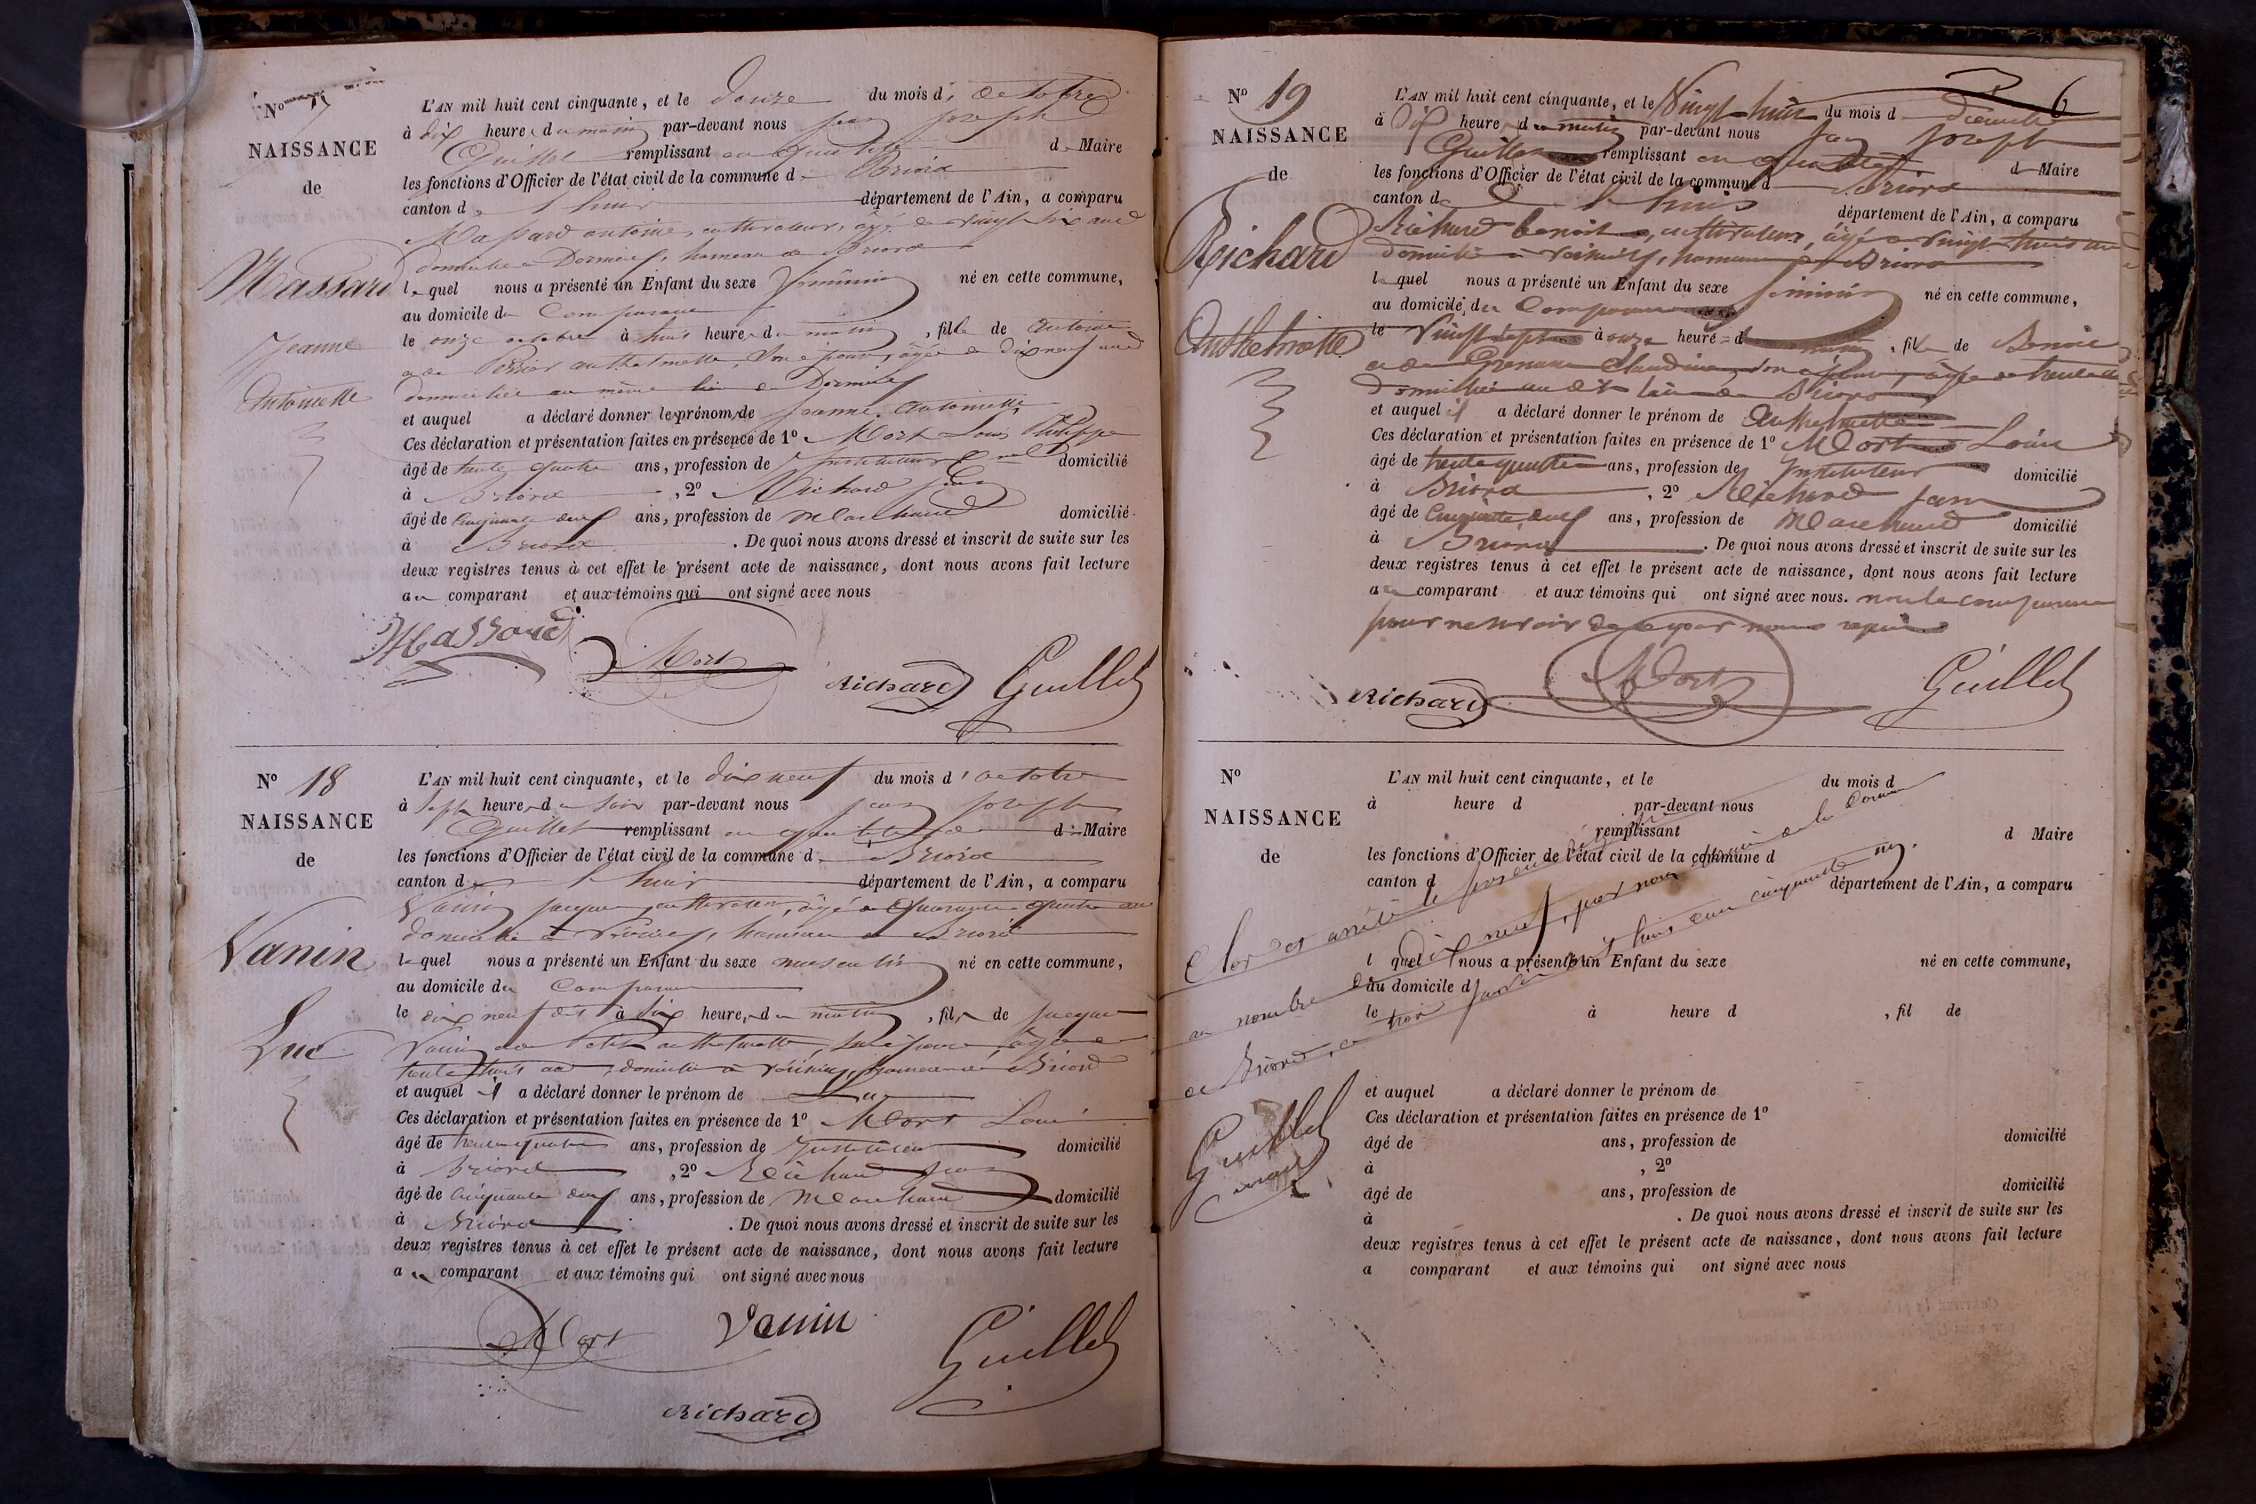 N°
NAISSANCE
de
Massard
Jeanne
Antoinette
L'AN mil huit cent cinquante, et le douze du mois d'octobre
à dix heures du matin par-devant nous jean joseph
Guillet remplissant en qualité de Maire
les fonctions d'Officier de l'état civil de la commune de Briord
canton de l'huis département de l'Ain, a comparu
Massard antoine, cultivateur, âgé de vingt six ans
domicilié à Dornieu, hameau de Briord
lequel nous a présenté un Enfant du sexe féminin né en cette commune,
au domicile du Comparant
le onze octobre à huit heures du matin, fille de antoine
et de anthelmette, son épouse, âgée de dix neuf ans
domiciliée au même lieu de Dornieu
et auquel a déclaré donner les prénoms de jeanne Antoinette
Ces déclaration et présentation faites en présence de 1° Mort Louis Philippe
âgé de trente quatre ans, profession de Instituteur domicilié
à Briord, 2° Richard jean
âgé de Cinquante deux ans, profession de Marchand domicilié
à Briord. De quoi nous avons dressé et inscrit de suite sur les
deux registres tenus à cet effet le présent acte de naissance, dont nous avons fait lecture
au comparant et aux témoins qui ont signé avec nous
Massard
Mort
Richard Guillet
N° 18
NAISSANCE
de
Vanin
Luc
L'AN mil huit cent cinquante, et le dix neuf du mois d'octobre
à Sept heures du soir par-devant nous jean joseph
Guillet remplissant en qualité de Maire
les fonctions d'Officier de l'état civil de la commune de Briord
canton de l'huis département de l'Ain, a comparu
Vanin jacques, cultivateur, âgé de quarante quatre ans
domicilié à hameau de Briord
lequel nous a présenté un Enfant du sexe masculin né en cette commune,
au domicile du Comparant
le dix neuf dit à Six heures du matin, fils de jacques
Vanin et de Petit anthelmette, son épouse, âgée de
trente huit ans, domiciliée à hameau de Briord
et auquel il a déclaré donner le prénom de Luc
Ces déclaration et présentation faites en présence de 1° Mort Louis
âgé de trente quatre ans, profession de Instituteur domicilié
à Briord, 2° Richard jean
âgé de Cinquante deux ans, profession de Marchand domicilié
à Briord. De quoi nous avons dressé et inscrit de suite sur les
deux registres tenus à cet effet le présent acte de naissance, dont nous avons fait lecture
au comparant et aux témoins qui ont signé avec nous
Mort Vanin Guillet
Richard
6
N° 19
NAISSANCE
de
Richard
Anthelmette
L'AN mil huit cent cinquante, et le Vingt huit du mois de décembre
à Dix heures du matin par-devant nous jean joseph
Guillet remplissant en qualité de Maire
les fonctions d'Officier de l'état civil de la commune de Briord
canton de l'huis département de l'Ain, a comparu
Richard benoit, cultivateur, âgé de vingt huit ans
domicilié à hameau de Briord
lequel nous a présenté un Enfant du sexe féminin né en cette commune,
au domicile du Comparant
le Vingt sept à onze heures du matin, fille de Benoit
et de Claudine, son épouse, âgée de trente ans
Domiciliée au dit lieu de Briord
et auquel il a déclaré donner le prénom de Anthelmette
Ces déclaration et présentation faites en présence de 1° Mort Louis
âgé de trente quatre ans, profession de Instituteur domicilié
à Briord, 2° Richard jean
âgé de Cinquante deux ans, profession de Marchand domicilié
à Briord. De quoi nous avons dressé et inscrit de suite sur les
deux registres tenus à cet effet le présent acte de naissance, dont nous avons fait lecture
au comparant et aux témoins qui ont signé avec nous. non le comparant
pour ne savoir de ce par nous requis
Richard Mort Guillet
N°
NAISSANCE
de
L'AN mil huit cent cinquante, et le du mois d
à heure d par-devant nous
remplissant d Maire
les fonctions d'Officier de l'état civil de la commune d
canton d département de l'Ain, a comparu
l quel nous a présenté un Enfant du sexe né en cette commune,
au domicile d
le à heure d, fil de
et auquel a déclaré donner le prénom de
Ces déclaration et présentation faites en présence de 1°
âgé de ans, profession de domicilié
à, 2°
âgé de ans, profession de domicilié
à. De quoi nous avons dressé et inscrit de suite sur les
deux registres tenus à cet effet le présent acte de naissance, dont nous avons fait lecture
a comparant et aux témoins qui ont signé avec nous
Clos et arrêté le présent registre
au nombre de dix neuf, par nous maire de la Commune
de Briord, ce janvier mil huit cent cinquante un.
Guillet
maire